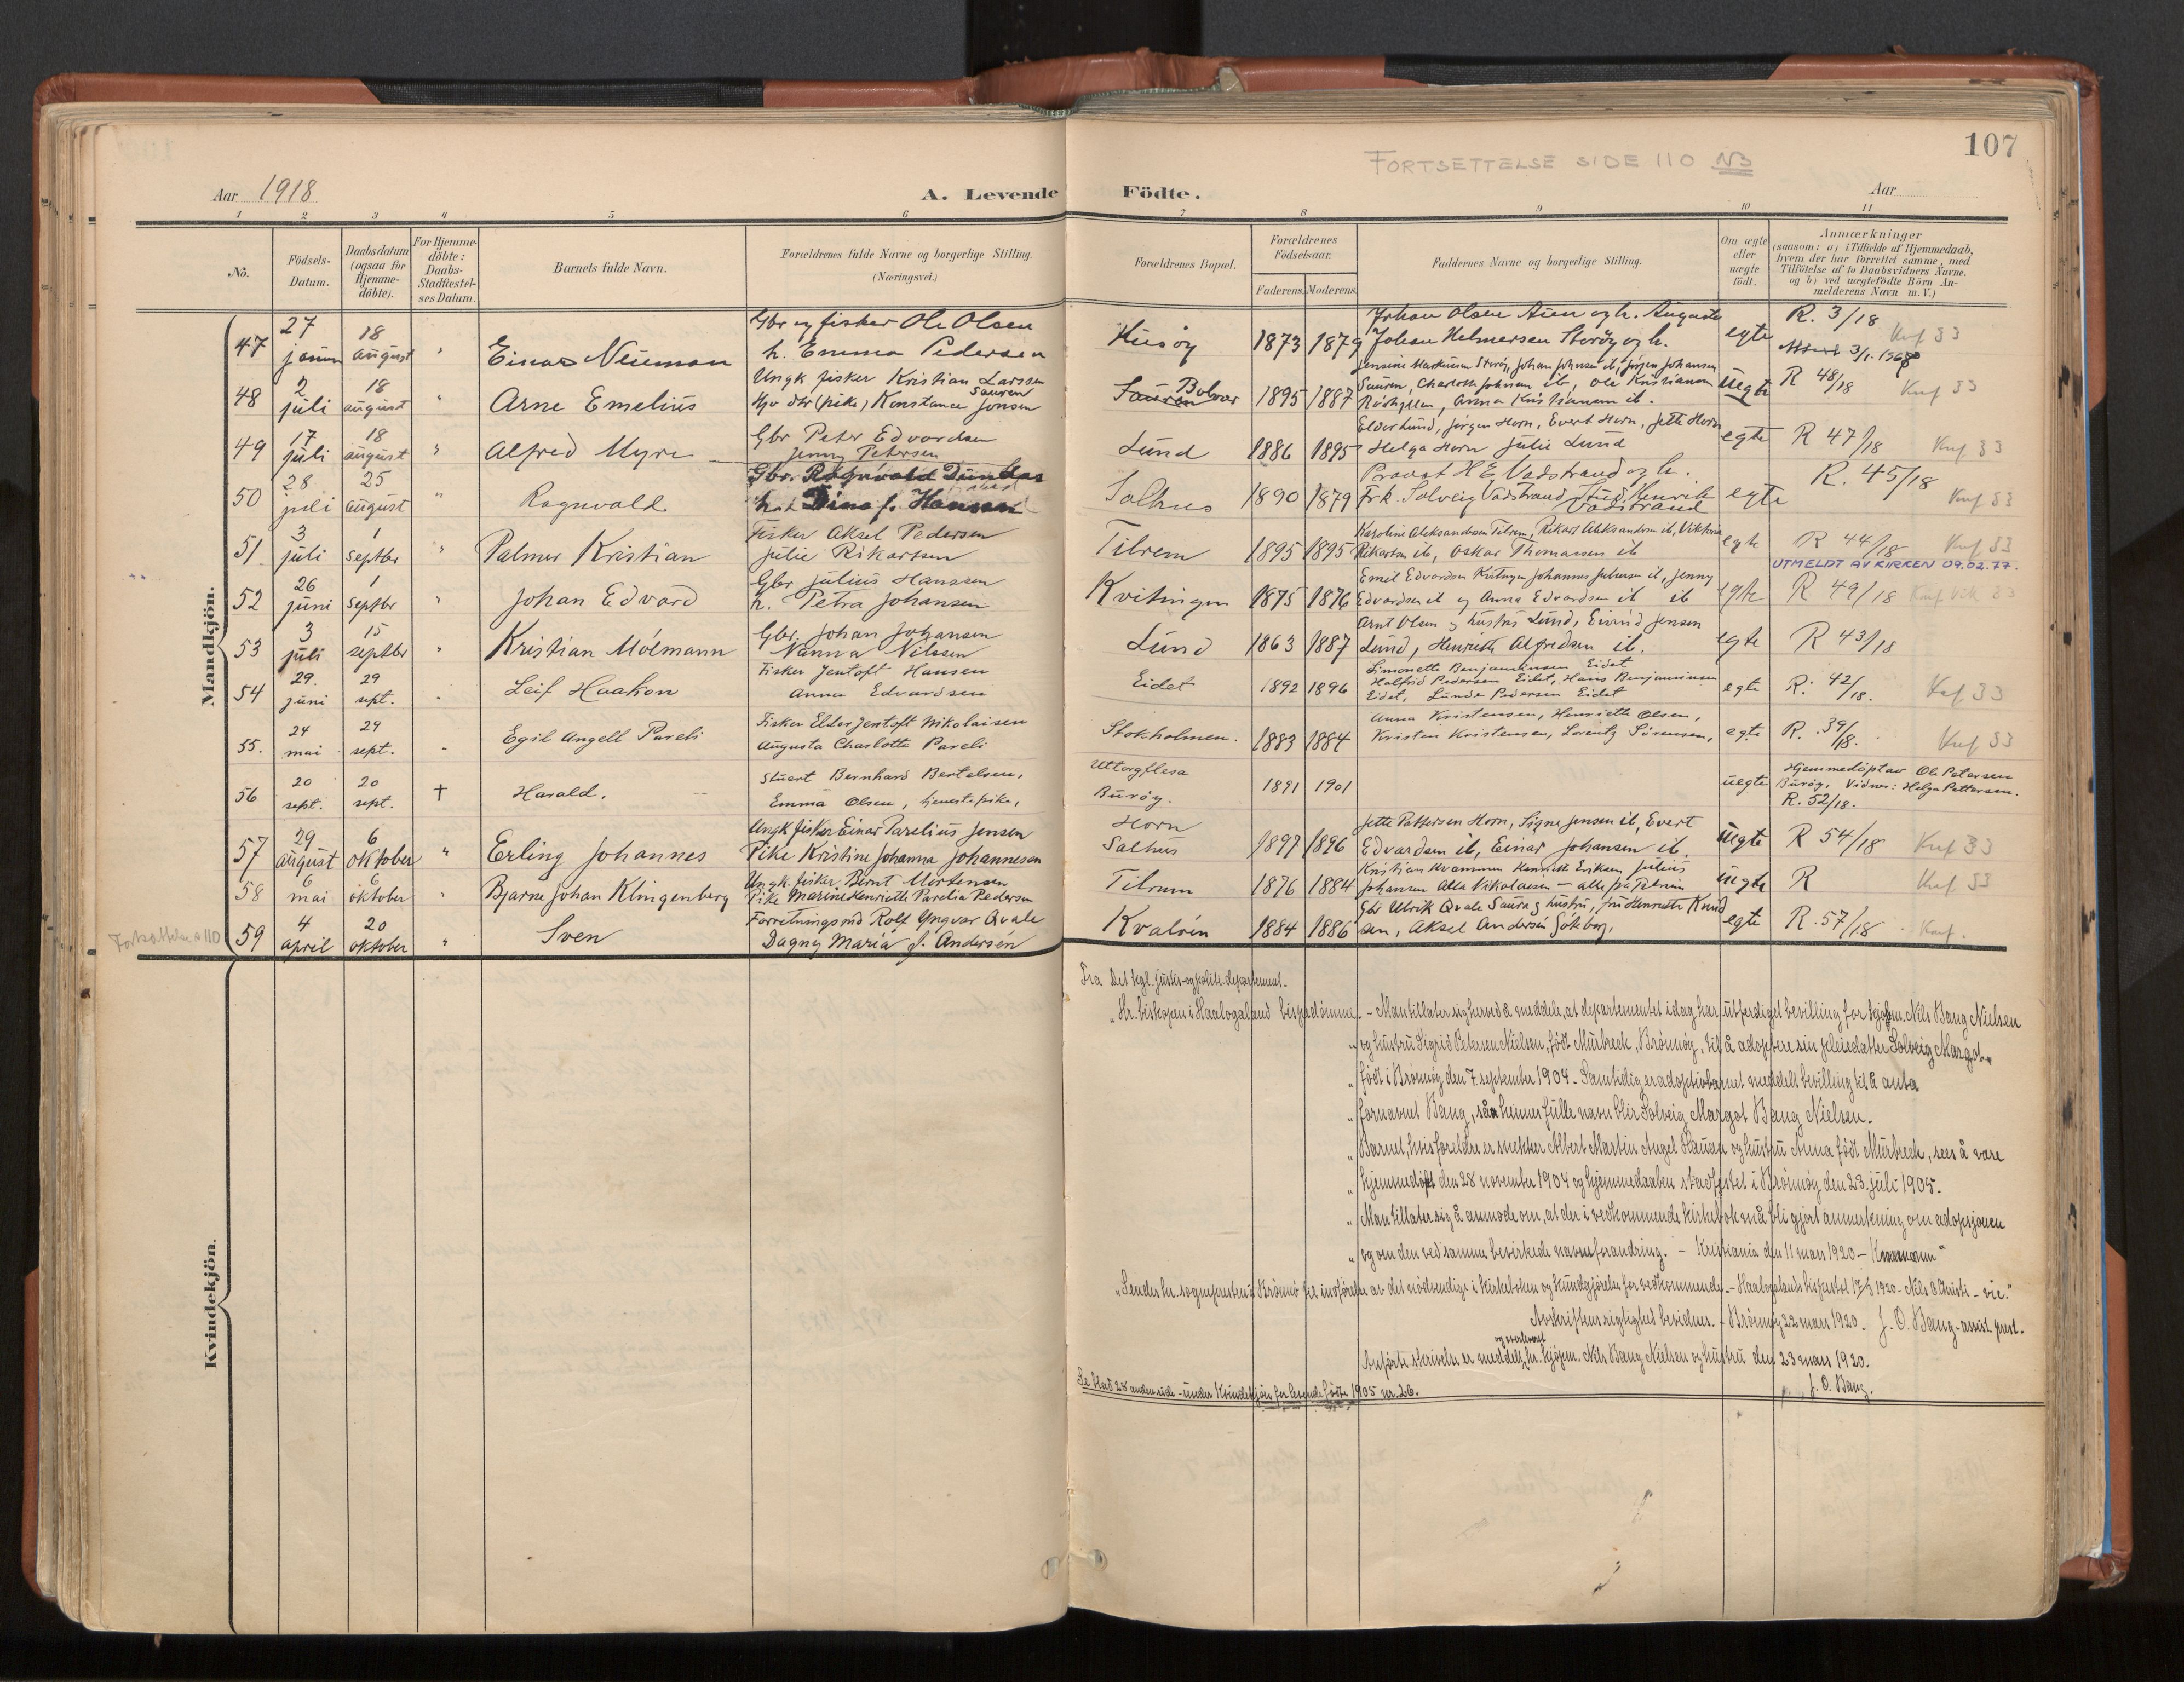 107
FORTSETTELSE SIDE 110 NB
Aar 1918
A. Levende Födte.
Aar
1 2 3 4 5 6 7 8 9 10 11
No.
Födsels-Datum.
Daabsdatum (ogsaa for Hjemme-döbte).
For Hjemme-döbte: Daabs-Stadfæstel-ses Datum.
Barnets fulde Navn.
Forældrenes fulde Navne og borgerlige Stilling. (Næringsvei.)
Forældrenes Bopæl.
Forældrenes Födselsaar.
Faderens. Moderens.
Faddernes Navne og borgerlige Stilling.
Om ægte eller uægte födt.
Anmærkninger (saasom: a) i Tilfælde af Hjemmedaab, hvem der har forrettet samme, med Tilföielse af to Daabsvidners Navne. og b) ved uægtefödte Börn An-melderens Navn m. V.)
Mandkjön.
47 27 18 august " Einar Neuman Gbr og fisker Ole Olsen
h. Emma Pedersen Husöy 1873 1879 Johan Olsen og h. Augusta
Johan Helmersen Storöy og h. egte R. 3/18
3/1-1968
48 2 juli 18 august " Arne Emelius Ungk fisker Kristian Larssen Sauren
(pike) Konstance Jonsen Sauren Bolvær 1895 1887 Jensine Storöy, Johan Johnsen ib, Jörgen Johansen
Sauren, Charlotte Johnsen ib, Ole Kristiansen
Anna Kristiansen ib. uegte R 48/18 Knf 33
49 17 juli 18 august " Alfred Myre Gbr Peter Edvardsen
Jenny Petersen Lund 1886 1895 Elder Lund, Jörgen Horn, Evert Horn, Jette Horn
Helga Horn Julie Lund egte R 47/18 Knf 33
50 28 juli 25 august " Ragnvald Gbr. Ragnvald Dundas
h. Dina f. Hansen Salhus 1890 1879 Provst H E Vadstrand og h.
Frk. Solveig Vadstrand Stud. Henrik Vadstrand egte R. 45/18 Knf 33
51 3 juli 1 septbr " Palmer Kristian Fisker Aksel Pedersen
Julie Rikartsen Tilrem 1895 1895 Karoline Aleksandersen Tilrem, Rikart Aleksandersen ib, Viktoria
Rikartsen ib, Oskar Thomassen ib egte R 44/18 Knf 33
UTMELDT AV KIRKEN 09.02.77.
52 26 juni 1 septbr " Johan Edvard Gbr Julius Hanssen
h. Petra Johansen Kvitingen 1875 1876 Emil Edvardsen Kvitingen Johannes ib, Jenny
Edvardsen ib og Anna Edvardsen ib egte R 49/18
53 3 juli 15 septbr " Kristian Mölmann Gbr. Johan Johansen
Nanna Nilssen Lund 1863 1887 Arnt Olsen og hustru Lund, Eivind Jensen
Lund, Henriette Alfredsen ib. egte R 43/18
54 29. juni 29 sept. " Leif Haakon Fisker Jentoft Hansen
Anna Edvardsen Eidet 1892 1896 Simonette Benjaminsen Eidet
Halfrid Pedersen Eidet, Hans Benjaminsen
Eidet, Lunde Pedersen Eidet egte R. 42/18. Knf 33
55. 24 mai 29 sept. " Egil Angell Pareli Fisker Elder Jentoft Nikolaisen
Augusta Charlotte Pareli Stokholmen. 1883 1884 Anna Kristensen, Henriette Olsen,
Kristen Kristensen, Lorentz Sörensen, egte R. 39/18. Knf 33
56 20 sept. 20 sept. † Harald. Stuert Bernhard Bertelsen,
Emma Olsen, tjenestepike, Uttorgflesa
Buröy. 1891 1901 uegte Hjemmedöpt av Ole Petersen
Buröy, Vidner: Helga Pettersen.
R. 52/18.
57 29 august 6 oktober " Erling Johannes Ungk fisker Einar Parelius Jensen
Pike Kristine Johanna Johannesen Horn
Salhus 1897 1896 Jette Pettersen Horn, Signe Jensen ib, Evert
Edvardsen ib, Einar Johansen ib, uegte R 54/18 Knf 33
58 6 mai 6 oktober " Bjarne Johan Klingenberg Ungk. fisker Bernt Mortensen
Pike Marine Henriette Parelia Pedersen Tilrem 1876 1884 Kristian Kvammen Henriette Eriksen Julius
Johansen Alla Nikolaisen – alle på Tilrem uegte R Knf 33
Fortsættelse s 110 59 4 april 20 oktober " Sven Forretningsmd Rolf Yngvar Qvale
Dagny Maria f. Andersén Kvalöen 1884 1886 Gbr Ulrik Qvale Sauren og hustru, fru Henriette Knud
sen, Aksel Andersén Göteborg. egte R. 57/18 Knf.
Kvindekjön.
Fra Det kgl. justis- og politi-departement.
"Hr. biskopen i Haalogaland bispedömme. – Man tillater sig herved å meddele, at departementet idag har utferdiget bevilling for kjøpm. Nils Bang Nielsen
" og hustru Sigrid Petersen Nielsen, född Murbech, Brönnöy, til å adoptere sin pleiedatter Solveig Margot,
" född i Brönnöy den 7. september 1904. Samtidig er adoptivbarnet meddelt bevilling til å anta
" fornavnet Bang, så hennes fulle navn blir Solveig Margot Bang Nielsen.
" Barnet, hvis foreldre er snekker Albert Martin Angel Hansen og hustru Anna född Murbech, sees å være
" hjemmedöpt den 28 november 1904 og hjemmedaaben stadfestet i Brönnöy den 23. juli 1905.
" Man tillater sig å anmode om, at der i vedkommende kirkebok må bli gjort anmerkning om adopsjonen
" og om den ved samme bevirkede navneforandring. – Kristiania den 11 mars 1920 –
"Sendes hr. sognepresten i Brönnö til innförelse av det nödvendige i kirkeboken og kundgjörelse for vedkommende. – Haalogalands bispestol 17/3 1920 – Nils O Christi – vic."
Avskriftens rigtighed bevidnes. – Brönnöy 22 mars 1920. J. O. Bang – assist. prest.
og overlevert
Anförte skrivelse er meddelt hr. kjöpm. Nils Bang Nielsen og hustru den 23 mars 1920.
J. O. Bang.
Se blad 28 anden side – under Kvindekjön for levende födte 1905 nr. 26.